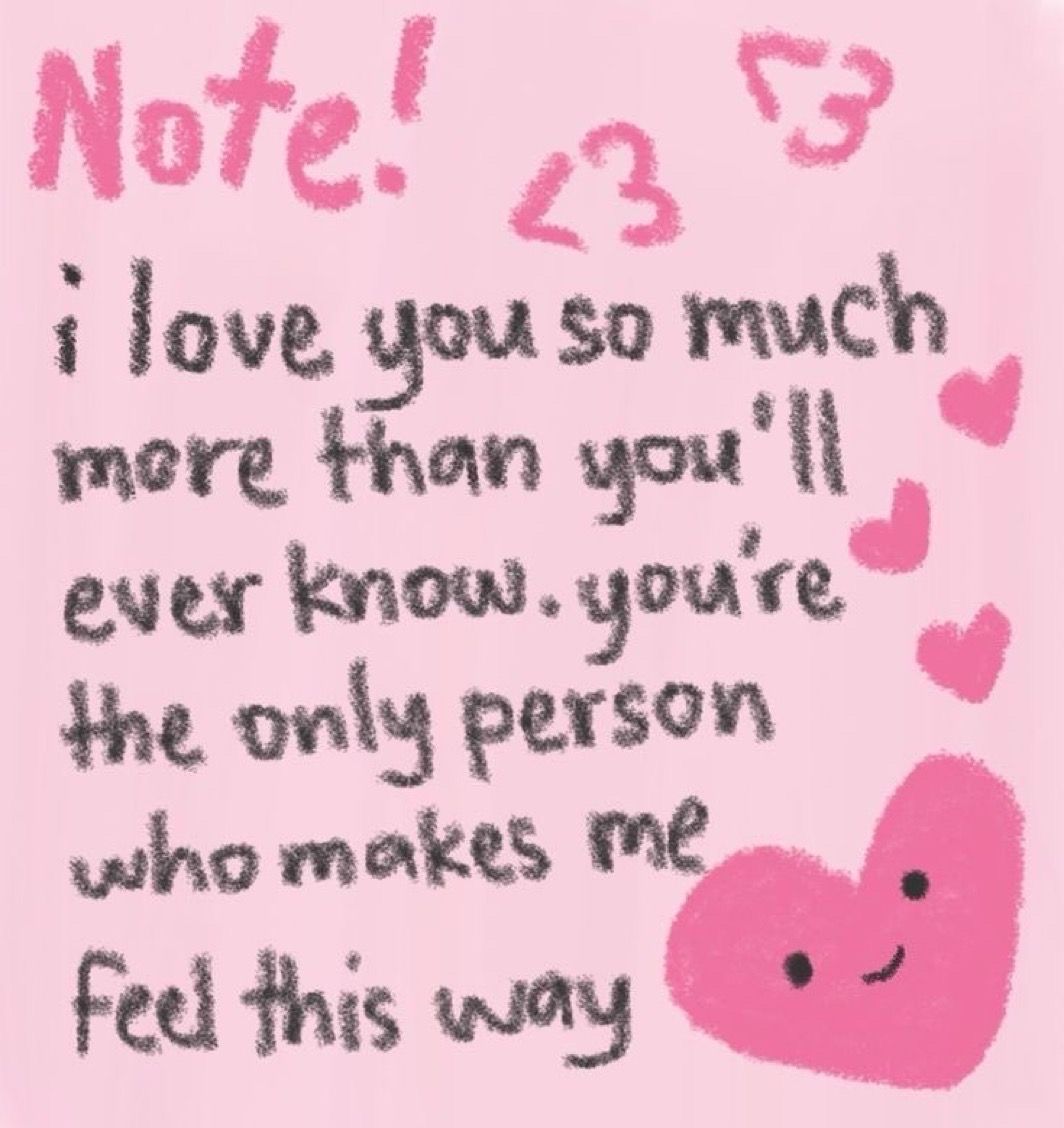 Note!
<3 <3
i love you so much
more than you'll
ever know. you're
the only person
who makes me
feel this way